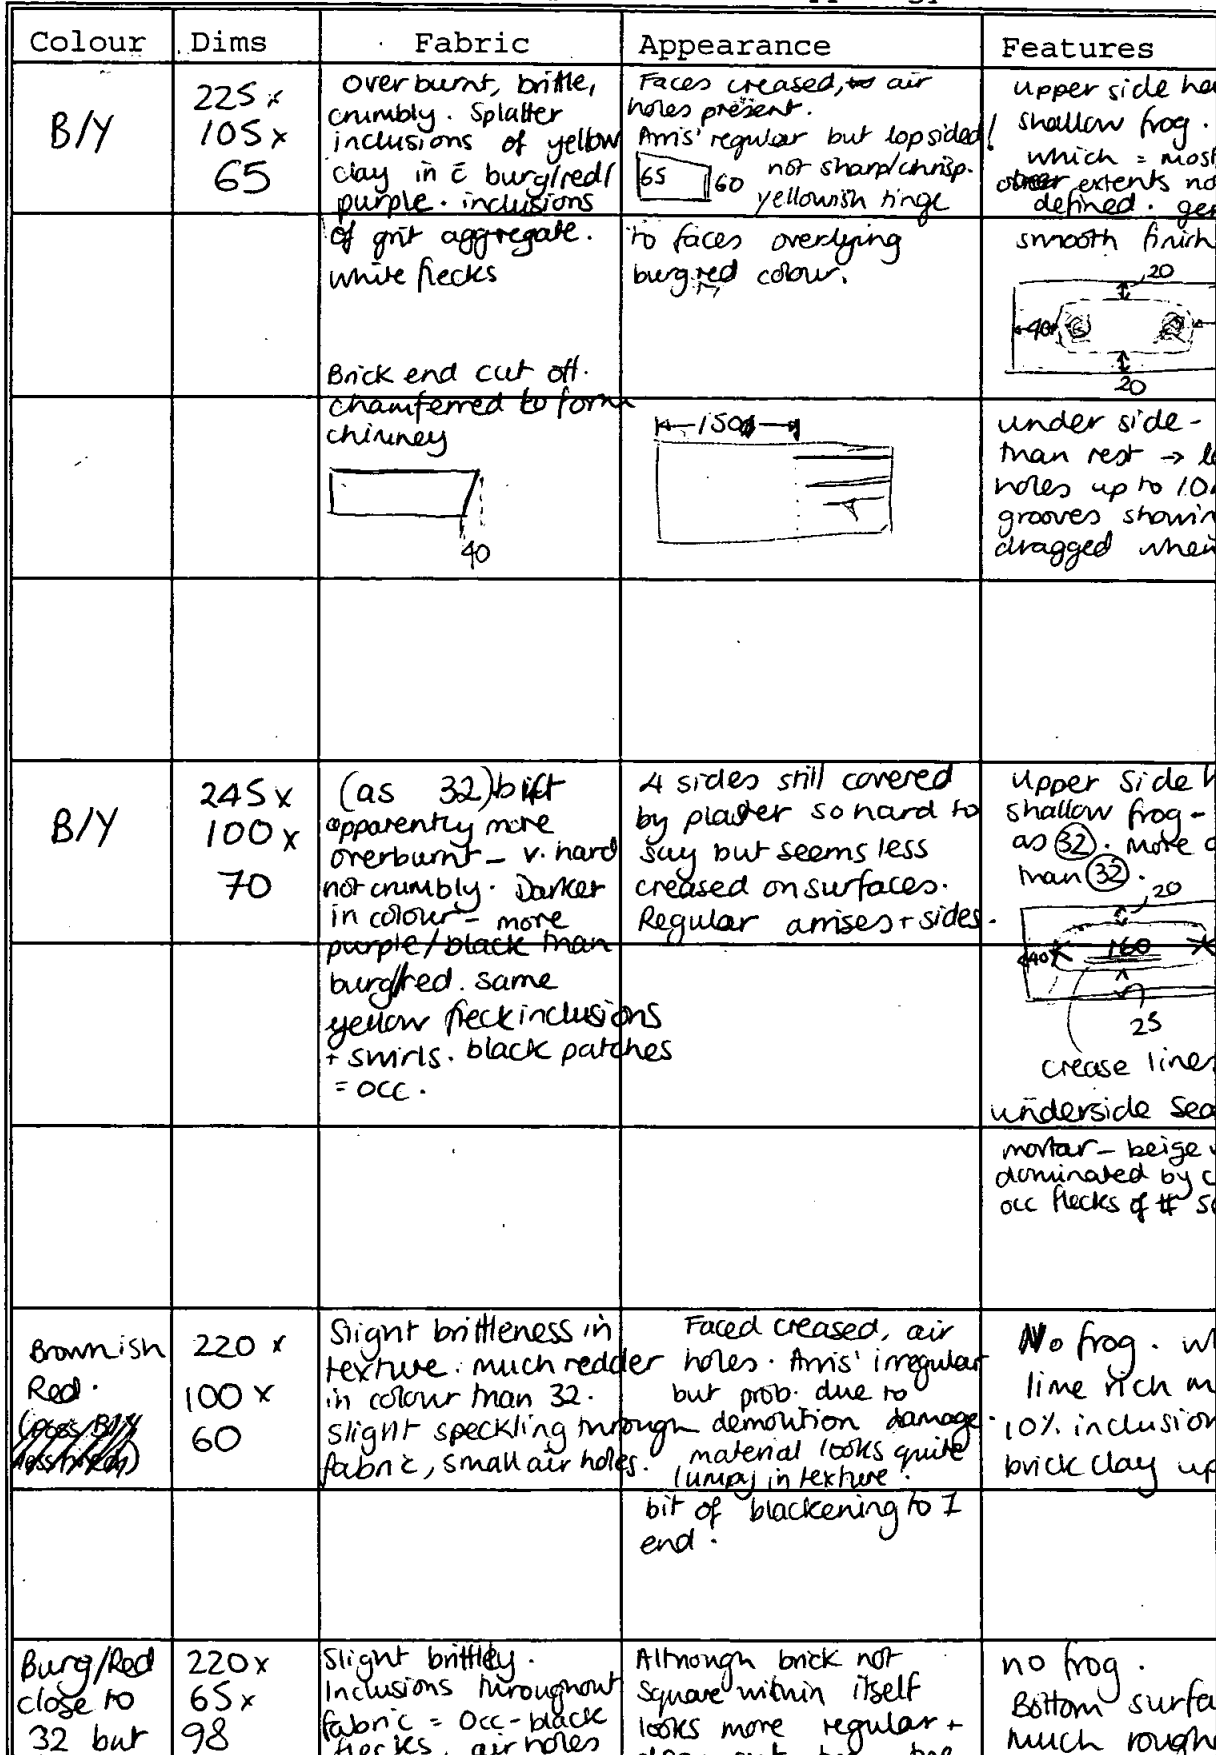 Colour Dims Fabric Appearance Features
B/Y
225 x
105 x
65
Overburnt, brittle,
crumbly. Splatter
inclusions of yellow
clay in c̄ burg/red/
purple. inclusions
of grit aggregate.
white flecks
Brick end cut off.
chamferred to form
chimney
40
Faces creased, air
holes present.
Arris' regular but lopsided!
65 60 not sharp/chrisp.
yellowish tinge
to faces overlying
burg.red colour.
150
upper side ha
shallow frog.
which = most
extents no
defined. ger
smooth finish
20
40
20
under side -
than rest → l
holes up to 10
grooves showin
dragged when
B/Y
245 x
100 x
70
(as 32) but
apparently more
overburnt - v. hard
not crumbly. Darker
in colour - more
purple/black than
burg/red. same
yellow fleck inclusions
+ swirls. black patches
= occ.
4 sides still covered
by plaster so hard to
say but seems less
creased on surfaces.
Regular arrises + sides.
upper side h
shallow frog -
as 32. more d
than 32.
20
40 160
25
crease lines
underside sea
mortar - beige
dominated by c
occ flecks of
Brownish
Red.
220 x
100 x
60
Slight brittleness in
texture. much redder
in colour than 32.
slight speckling through
fabric, small air holes.
Faced creased, air
holes. Arris' irregular
but prob. due to
demolition damage.
material looks quite
lumpy in texture.
bit of blackening to 1
end.
No frog. wh
lime rich m
10% inclusion
brick clay up
Burg/Red
close to
32 but
220 x
65 x
98
Slight brittley.
Inclusions throughout
fabric = occ - black
flecks, air holes
Although brick not
square within itself
looks more regular +
no frog.
Bottom surfa
much roughe